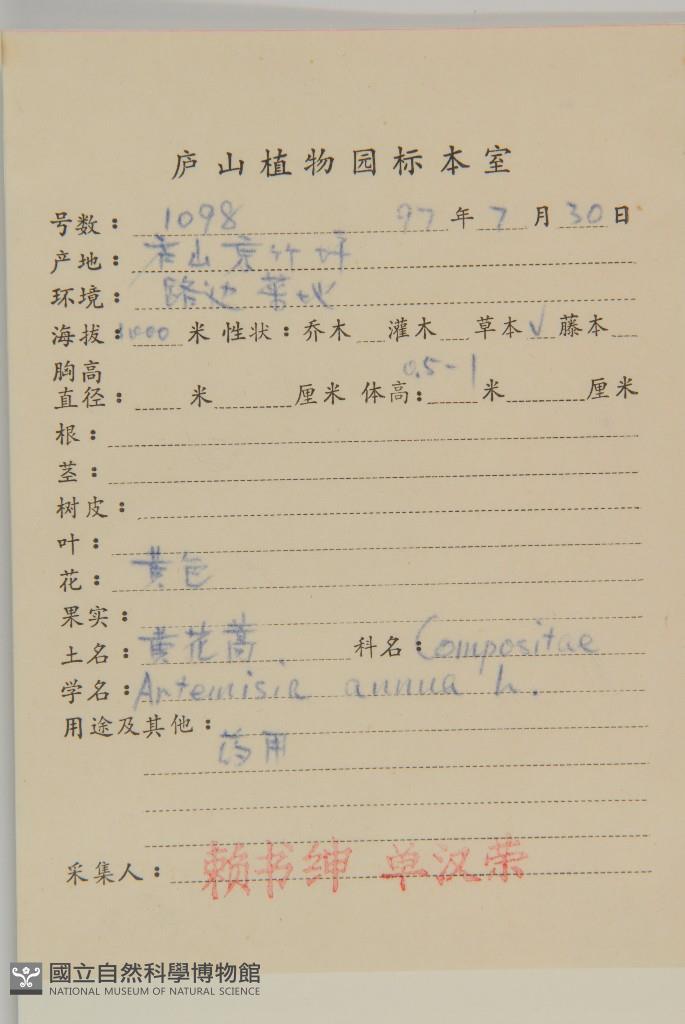 庐山植物园标本室
号数：1098 97年7月30日
产地：山竹坪
环境：路边草地
海拔：1000米 性状：乔木 灌木 草本√ 藤本
胸高
直径： 米 厘米 体高：0.5-1米 厘米
根：
茎：
树皮：
叶：
花：黄色
果实：
土名：黄花蒿 科名：Compositae
学名：Artemisia annua L.
用途及其他：
药用
采集人：赖书绅 单汉荣
國立自然科學博物館
NATIONAL MUSEUM OF NATURAL SCIENCE